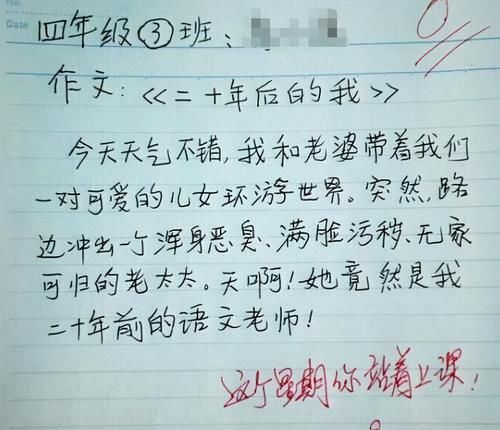 No.
Date
四年级③班:
0
作文:《二十年后的我》
今天天气不错,我和老婆带着我们
一对可爱的儿女环游世界。突然,路
边冲出一个浑身恶臭、满脸污秽、无家
可归的老太太。天啊!她竟然是我
二十年前的语文老师!
这个星期你站着上课!